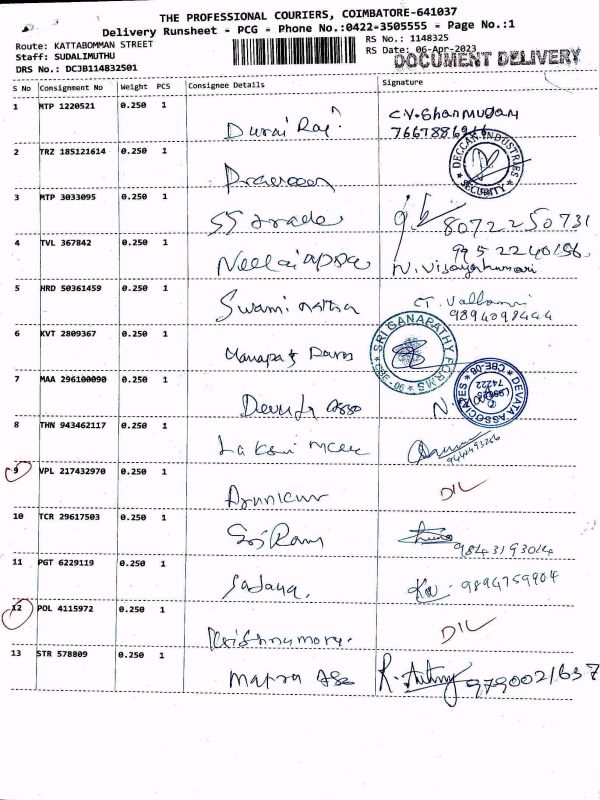 THE PROFESSIONAL COURIERS, COIMBATORE-641037
Delivery Runsheet - PCG - Phone No.:0422-3505555 - Page No.:1
Route: KATTABOMMAN STREET
RS No.: 1148325
Staff: SUDALIMUTHU
RS Date: 06-Apr-2023
DRS No.: DCJB114832501
DOCUMENT DELIVERY
S No Consignment No Weight PCS Consignee Details Signature
1 MTP 1220521 0.250 1 Durai Raj C.V. Shanmugam
2 TRZ 185121614 0.250 1 DECCAN INDUSTRIES SECURITY
3 MTP 3033095 0.250 1 SS Trade 8072250731
4 TVL 367842 0.250 1 Nellaiappa N. Vijayakumari
9952240156
5 HRD 50361459 0.250 1 Swami natha
9894098444
6 KVT 2809367 0.250 1 SRI GANAPATHY FORMS CBE-06
7 MAA 296100090 0.250 1 Asso N. DEVATA ASSOCIATES CBE-06
8 THN 943462117 0.250 1 Laksmi
9 VPL 217432970 0.250 1 Arunkumar D/L
10 TCR 29617503 0.250 1 Sri Ram
9843193014
11 PGT 6229119 0.250 1 Sadana. 9894759904
12 POL 4115972 0.250 1 D/L
13 STR 578809 0.250 1 Mapra Asso R. 9790021637